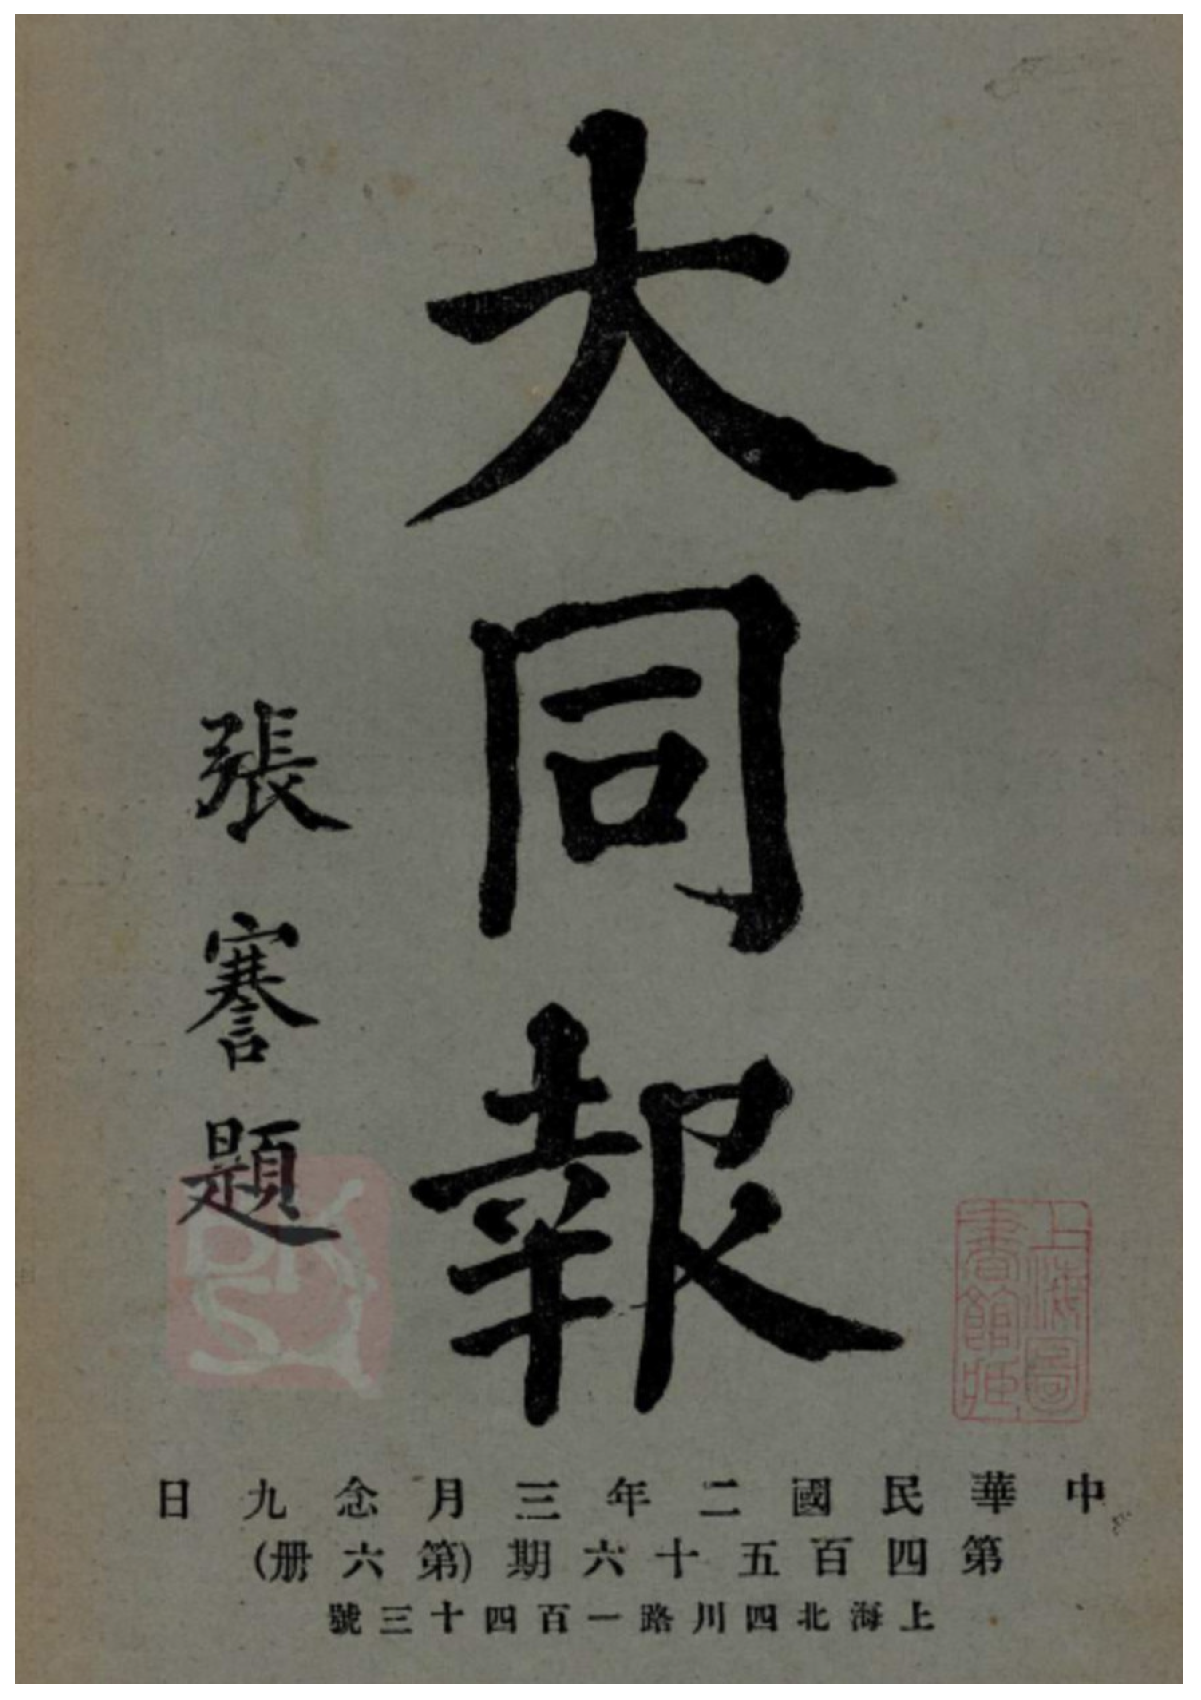 大同報
張謇題
上海圖書館藏
中華民國二年三月念九日
第四百五十六期(第六册)
上海北四川路一百四十三號